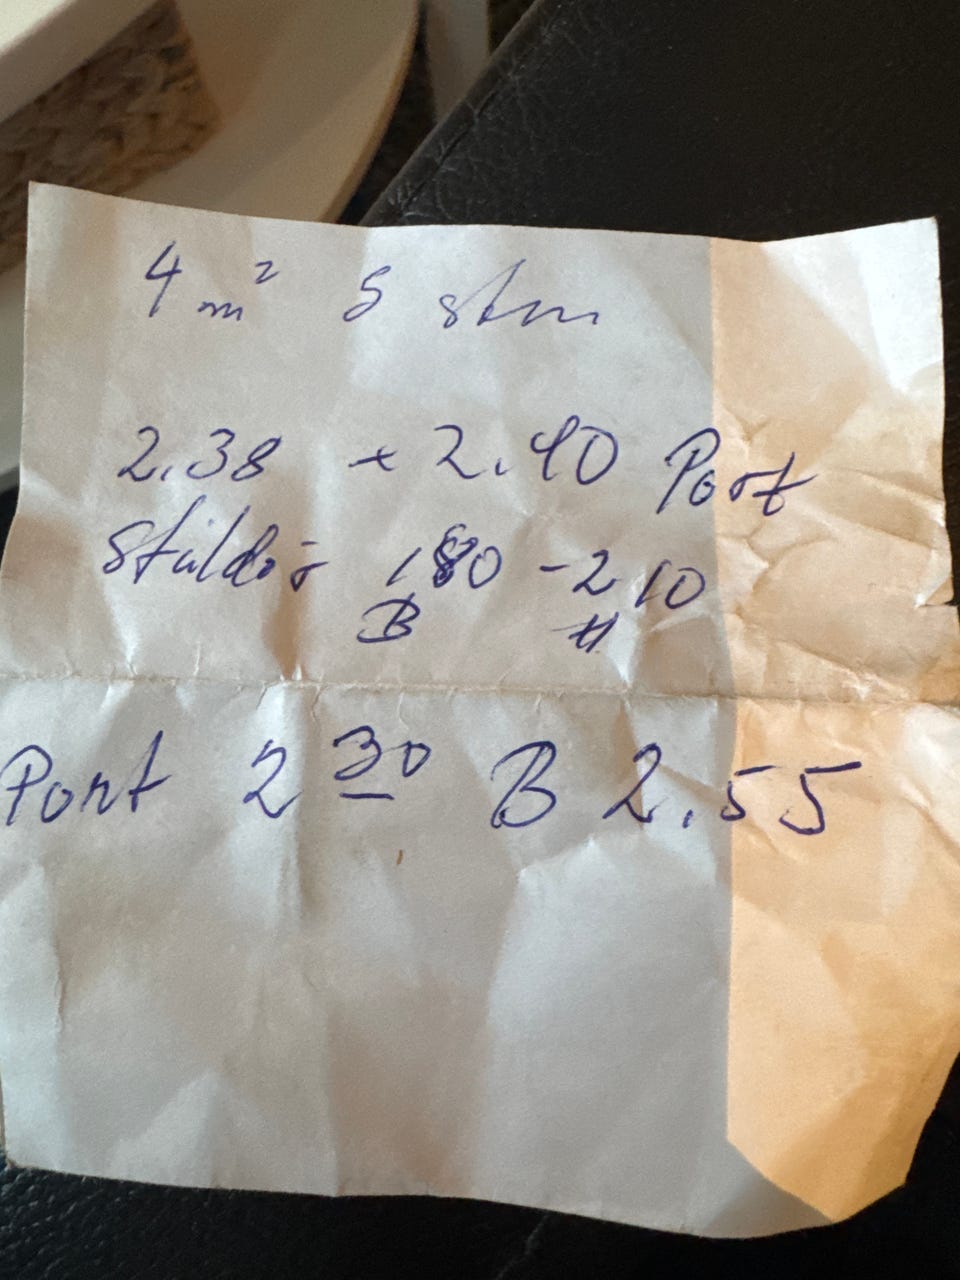 4 m² 8 sten
2.38 x 2.40 Port
Ståldör 180 - 210
B H
Port 2 30 B 2.55